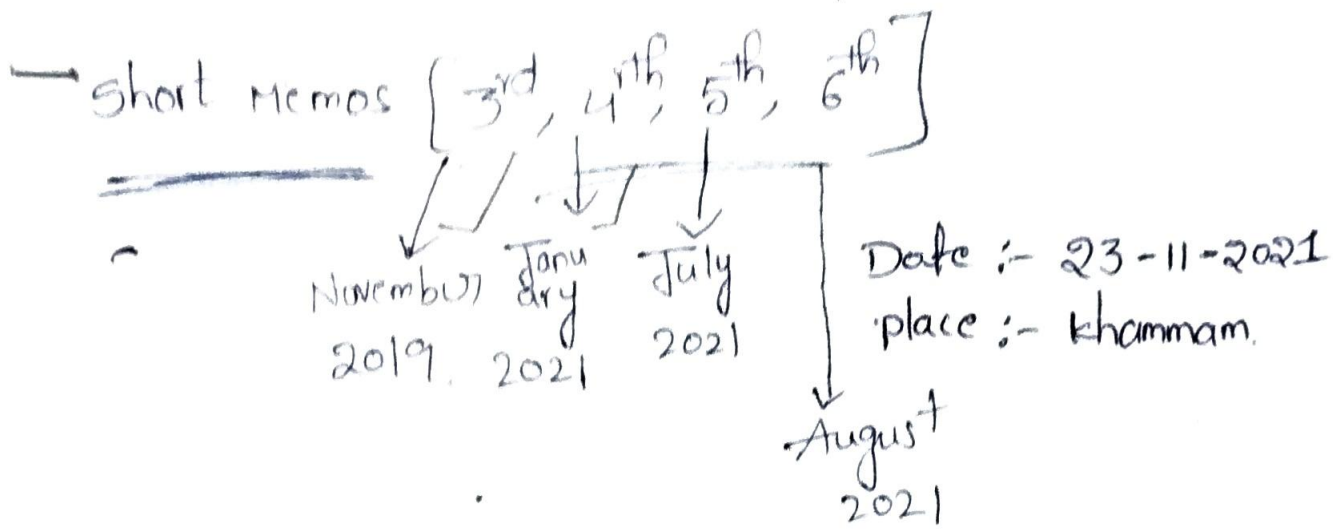 Short Memos [3rd, 4rth, 5th, 6th]
November 2019.
January 2021
July 2021
August 2021
Date :- 23-11-2021
place :- khammam.